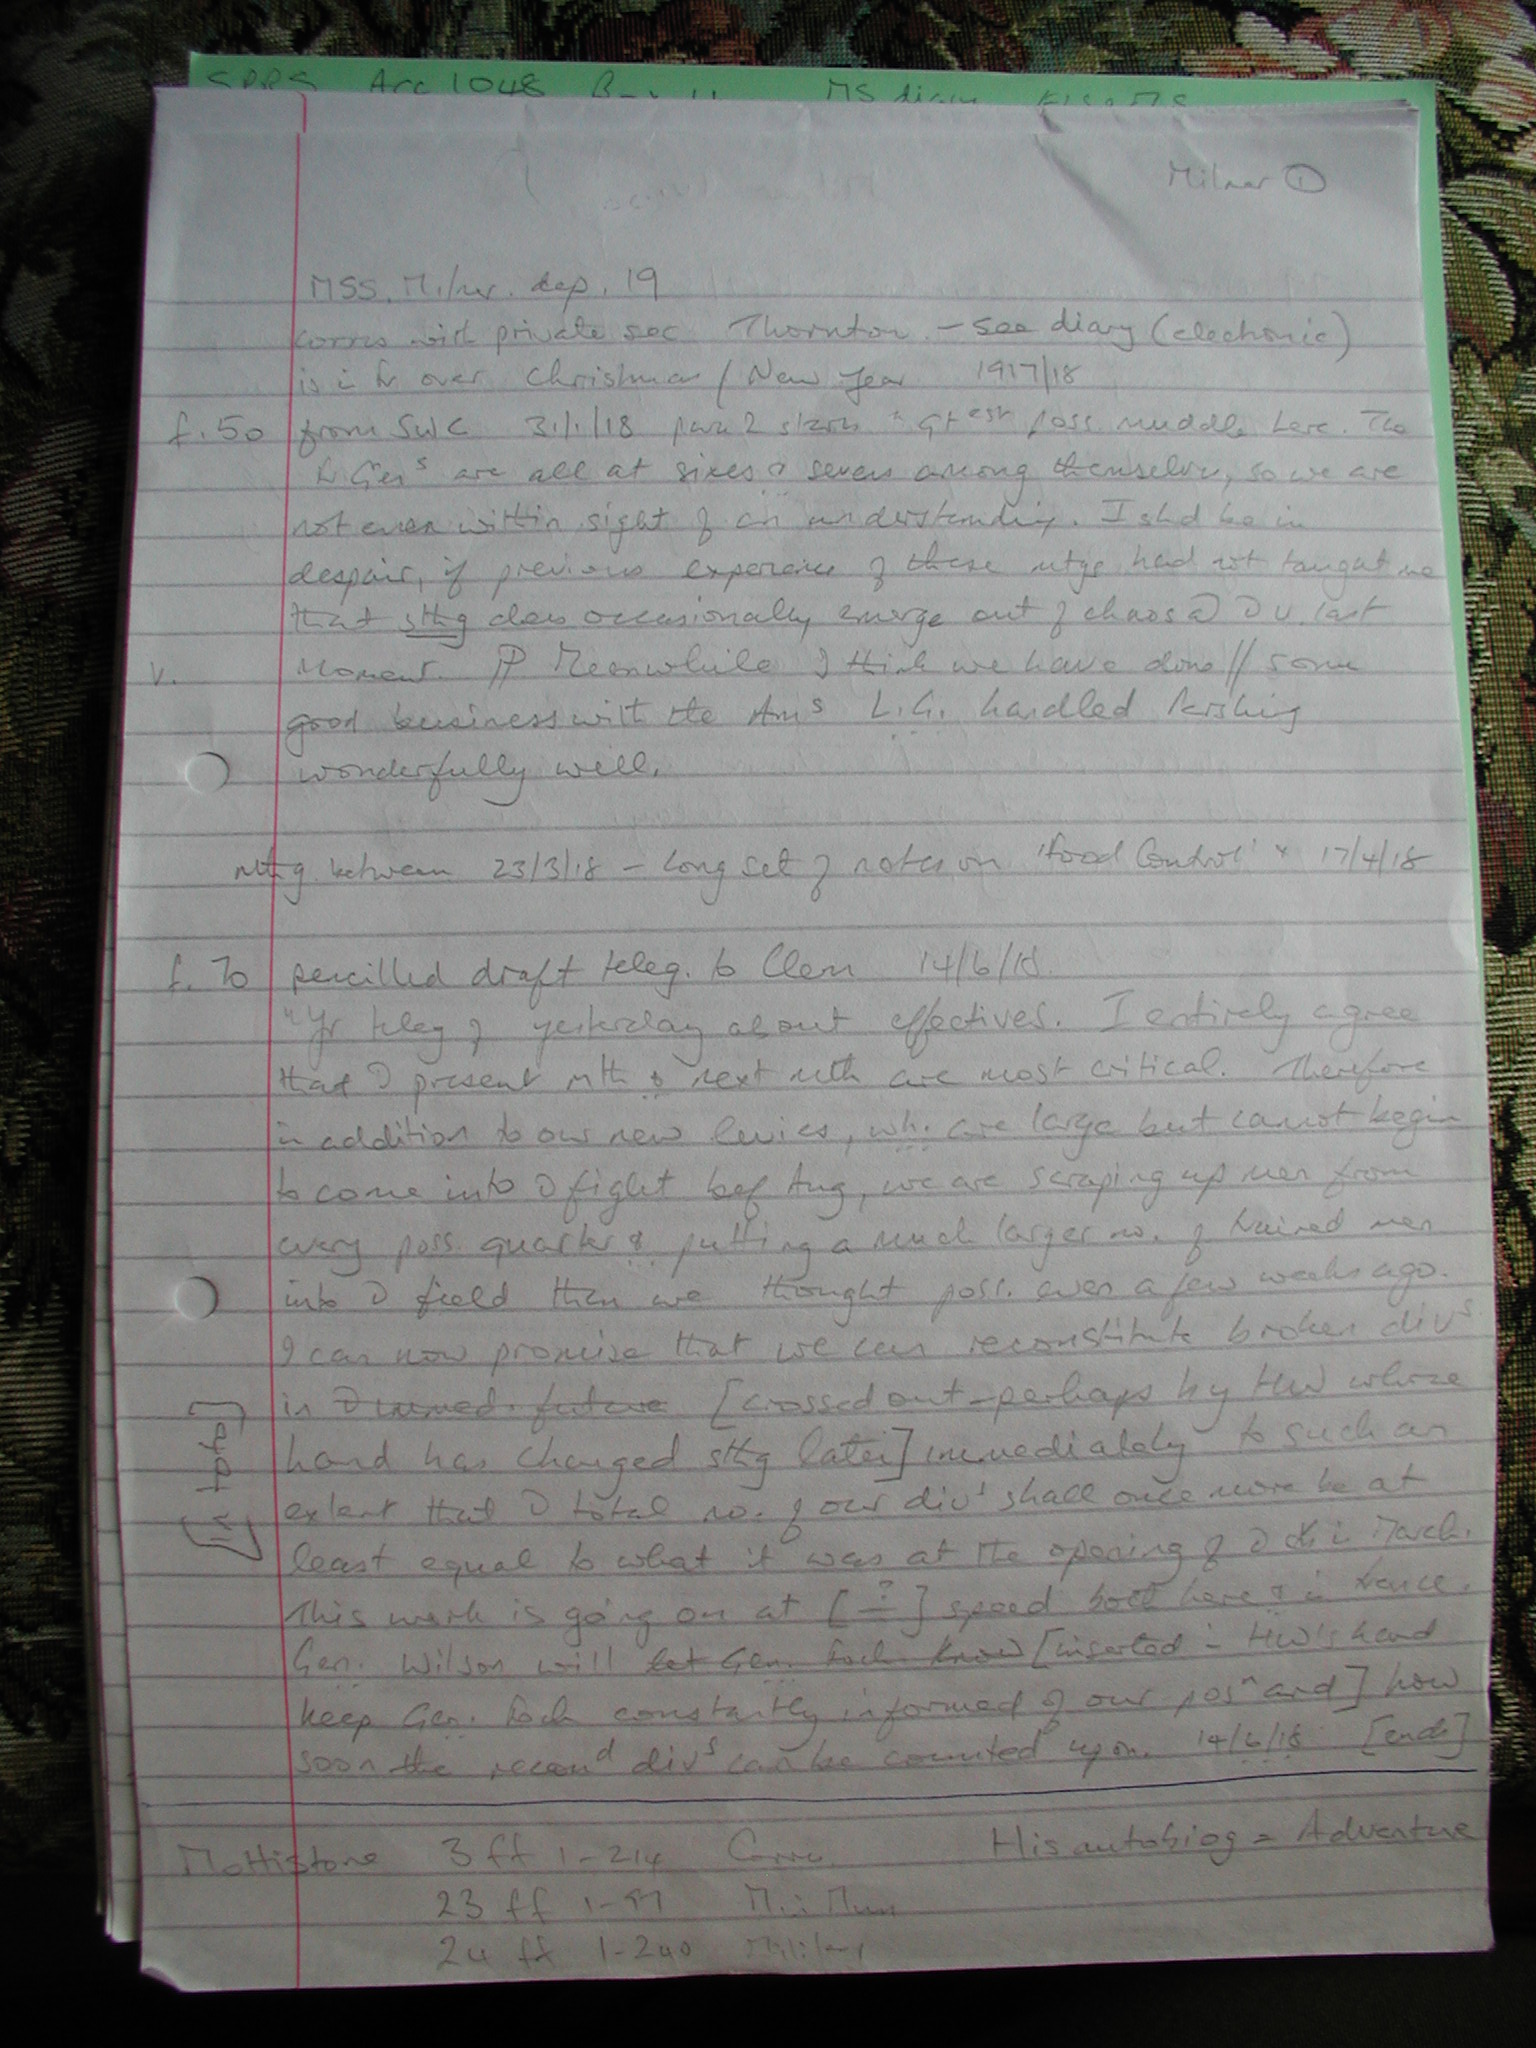 SPRS Acc 1048 Box 11 MS diary
Milner ①
MSS. Milner. dep. 19
corres with private sec Thornton - see diary (electronic)
is i Fr over Christmas / New Year 1917/18
f. 50 from SWC 31/1/18 para 2 starts "Gtest poss. muddle here. The
Fr Gens are all at sixes & sevens among themselves, so we are
not even within sight of an understanding. I shd be in
despair, if previous experience of these mtgs had not taught me
that sthg does occasionally emerge out of chaos @ D v. last
v. moment. ¶ Meanwhile I think we have done // some
good business with the Ams L.G. handled Pershing
wonderfully well.
Nthg between 23/3/18 - long set of notes on 'Food Control' & 17/4/18
f. 70 pencilled draft teleg. to Clem 14/6/18
"Yr teleg of yesterday about effectives. I entirely agree
that D present mth & next mth are most critical. Therefore
in addition to our new levies, wh. are large but cannot begin
to come into D fight bef Aug, we are scraping up men from
every poss. quarter & putting a much larger no. of trained men
into D field than we thought poss. even a few weeks ago.
I can now promise that we can reconstitute broken divs
in D immed. future [crossed out - perhaps by HW whose
hand has changed sthg later] immediately to such an
extent that D total no. of our divs shall once more be at
least equal to what it was at the opening of D in March.
This work is going on at [ ? ] speed both here & in France.
Gen. Wilson will let Gen. Foch know [inserted i HW's hand
keep Gen. Foch constantly informed of our posn and] how
soon the recond divs can be counted upon. 14/6/18 [ends]
Mottistone 3 ff 1-214 Corres. His autobiog = Adventure
23 ff 1-97 Min Mun
24 ff 1-240 Military